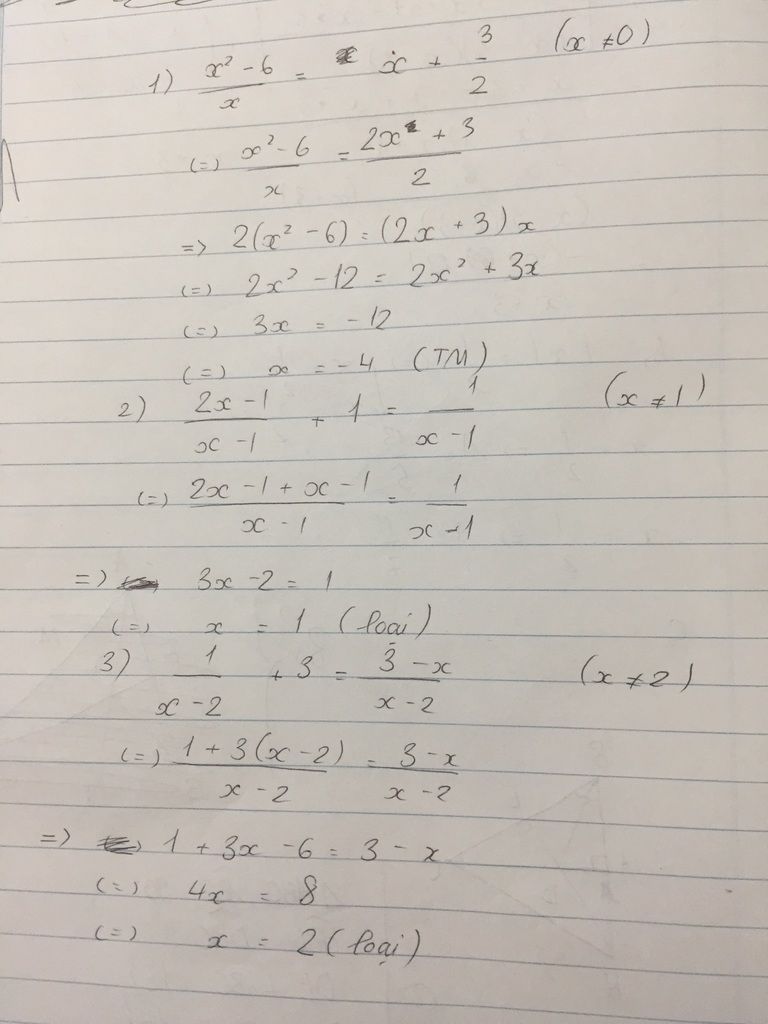 1) (x² - 6)/x = x + 3/2 (x ≠ 0)
(=) (x² - 6)/x = (2x + 3)/2
=> 2(x² - 6) = (2x + 3)x
(=) 2x² - 12 = 2x² + 3x
(=) 3x = -12
(=) x = -4 (TM)
2) (2x - 1)/(x - 1) + 1 = 1/(x - 1) (x ≠ 1)
(=) (2x - 1 + x - 1)/(x - 1) = 1/(x - 1)
=> 3x - 2 = 1
(=) x = 1 (loại)
3) 1/(x - 2) + 3 = (3 - x)/(x - 2) (x ≠ 2)
(=) (1 + 3(x - 2))/(x - 2) = (3 - x)/(x - 2)
=> 1 + 3x - 6 = 3 - x
(=) 4x = 8
(=) x = 2 (loại)